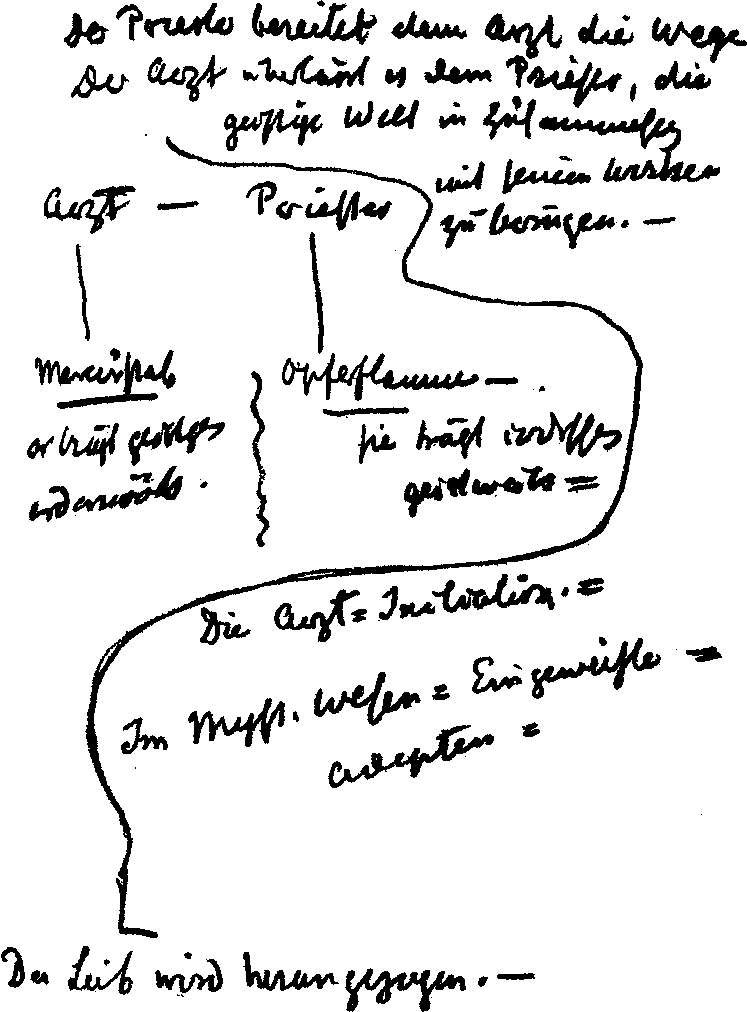 Der Priester bereitet dem Arzt die Wege
Der Arzt überlässt es dem Priester, die
geistige Welt in Zusammenhg
mit seinem Wirken
zu bringen. —
Arzt — Priester
Merkurstab
Opferflamme — .
er trägt geistiges
erdenwärts .
sie trägt irdisches
geistwärts =
Die Arzt = Initiation. =
Im Myst. Wesen = Eingeweihte =
Adepten =
Der Leib wird herangezogen. —